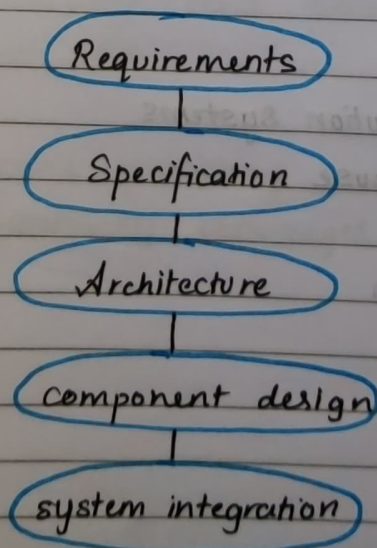 Requirements
Specification
Architecture
component design
system integration